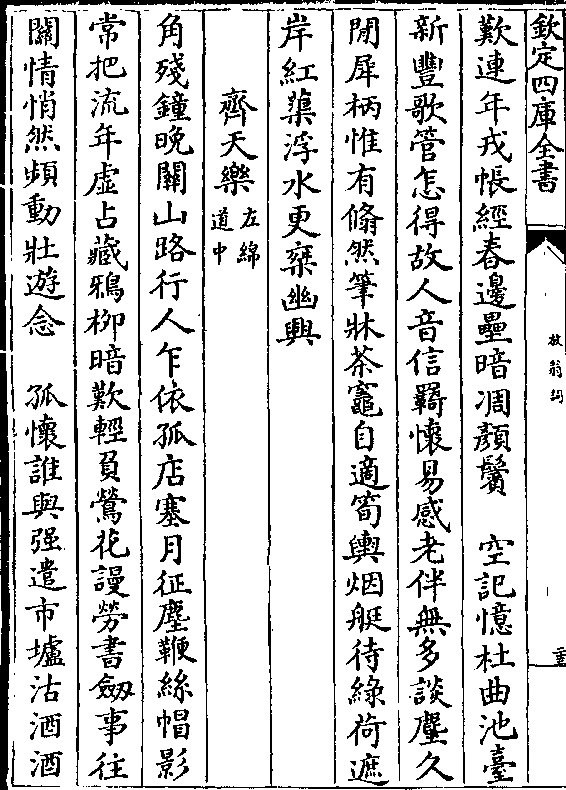 欽定四庫全書
放翁詞
歎連年戎帳經春邊壘暗凋顔鬢　空記憶杜曲池臺
新豐歌管怎得故人音信羇懷易感老伴無多談麈久
閒犀柄惟有翛然筆牀茶竈自適筍輿烟艇待綠荷遮
岸紅蕖浮水更乗幽興
齊天樂左綿道中
角殘鐘晚關山路行人乍依孤店塞月征塵鞭絲帽影
常把流年虛占藏鴉柳暗歎輕負鶯花謾勞書劔事往
關情悄然頻動壯遊念　孤懷誰與强遣市壚沽酒酒